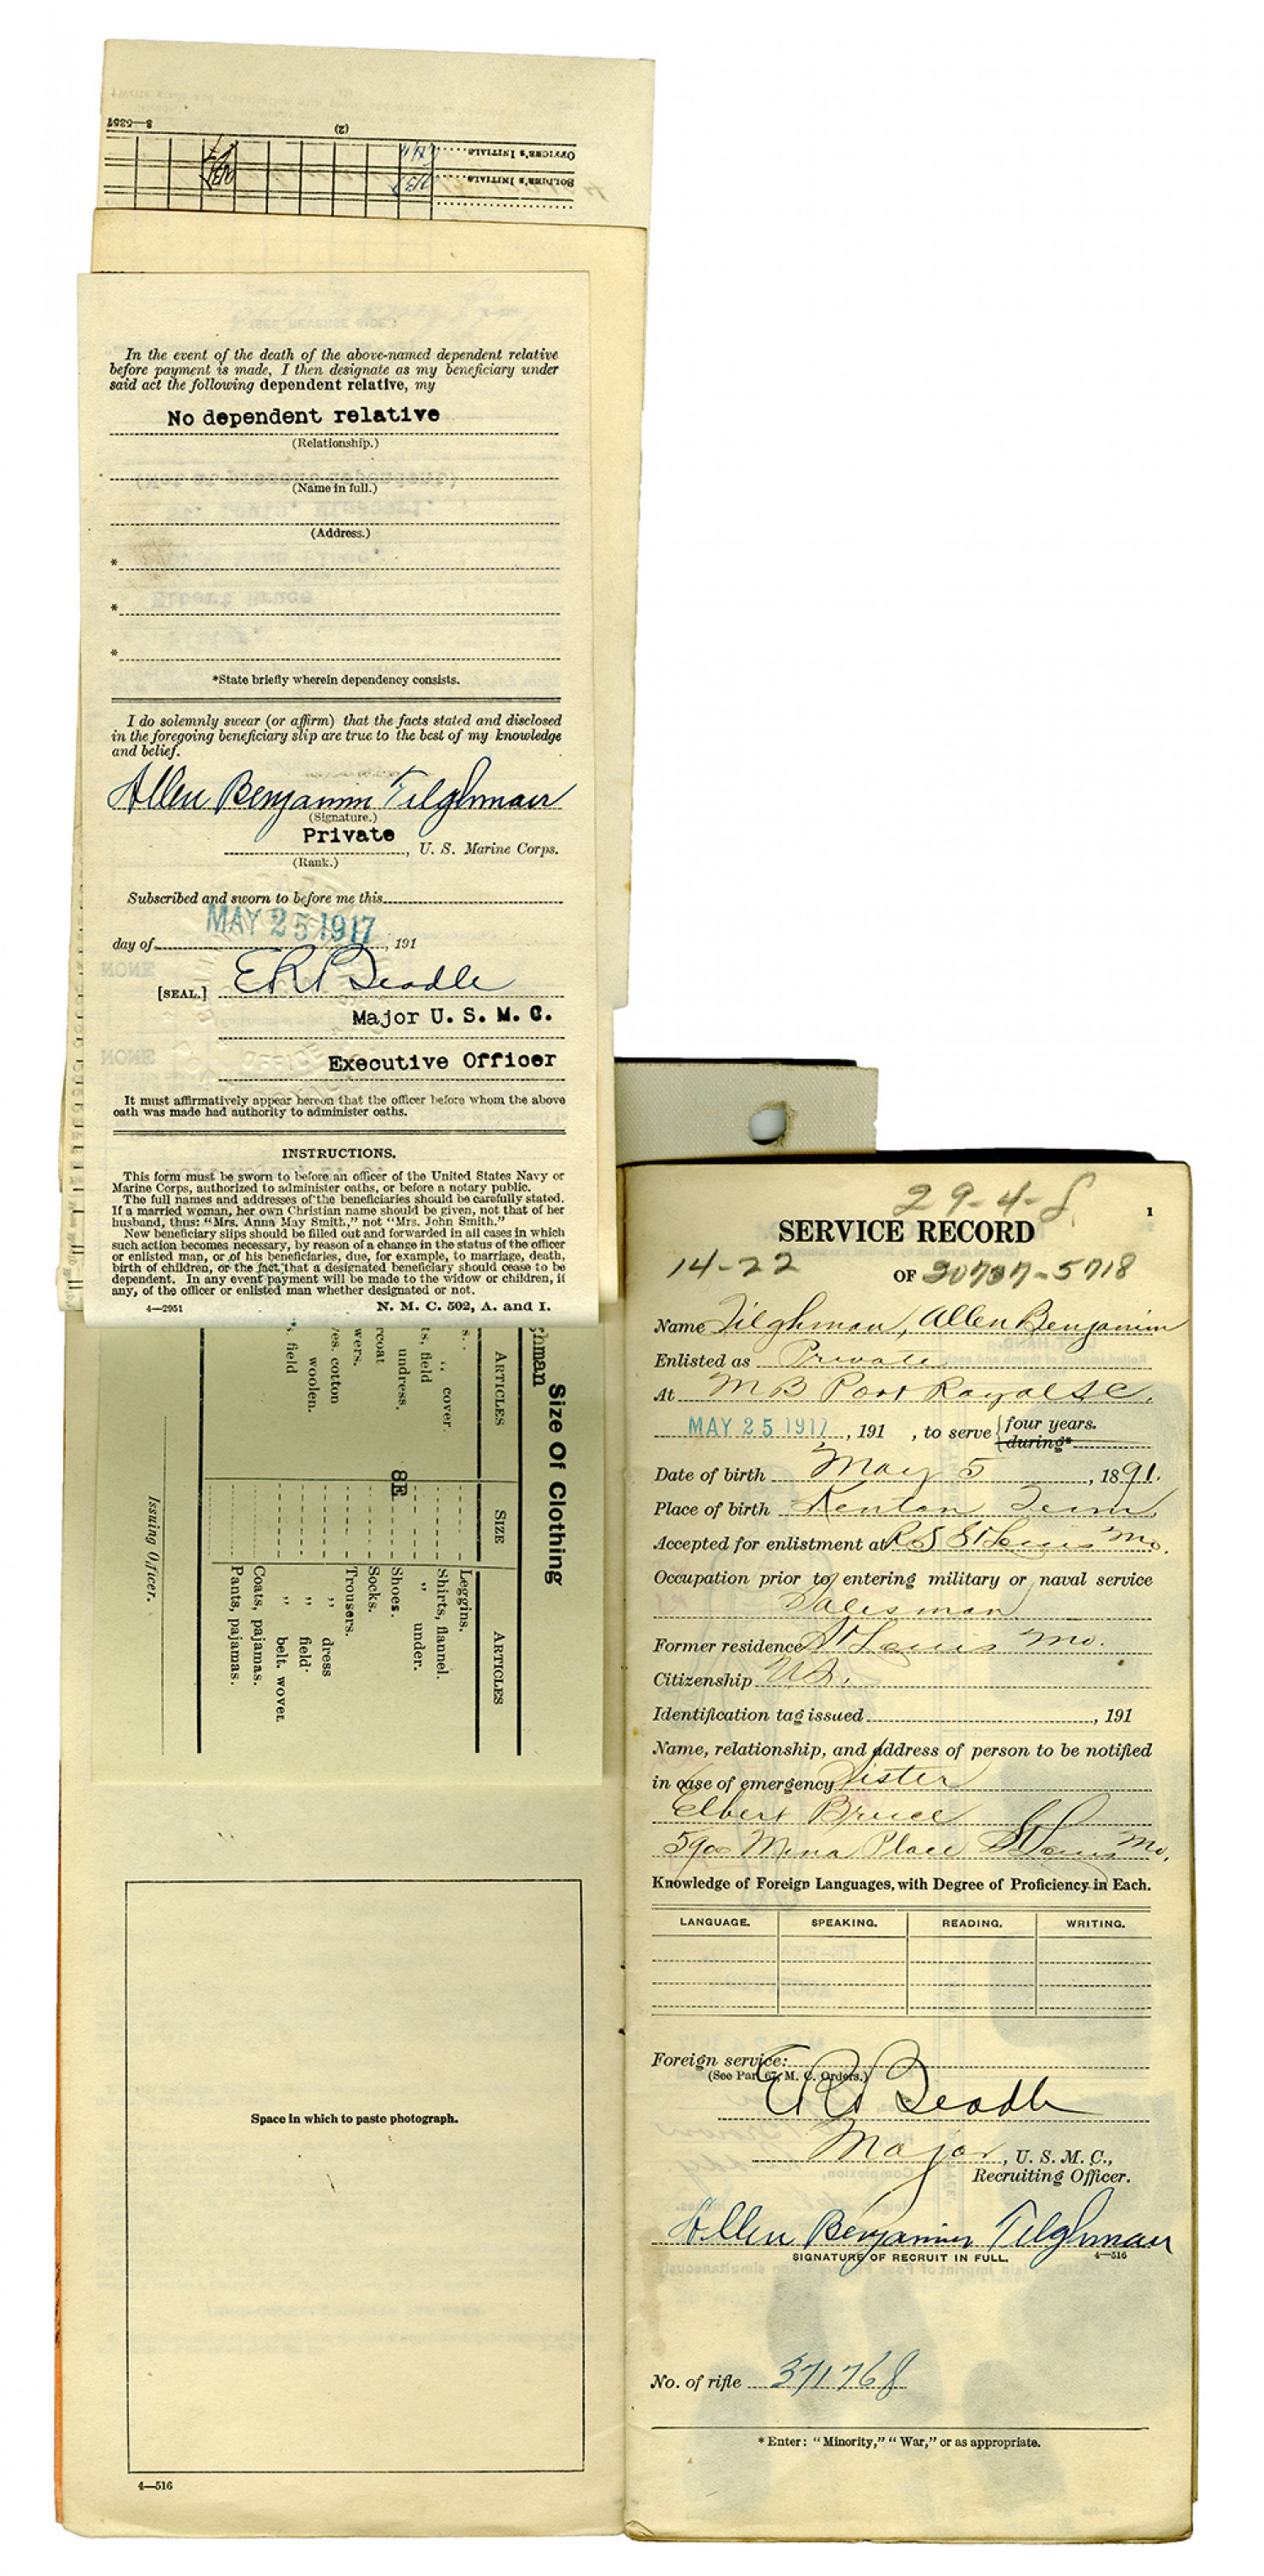 8—5357
(2)
OFFICER'S INITIALS
SOLDIER'S INITIALS
In the event of the death of the above-named dependent relative
before payment is made, I then designate as my beneficiary under
said act the following dependent relative, my
No dependent relative
(Relationship.)
(Name in full.)
(Address.)
*
*
*
*State briefly wherein dependency consists.
I do solemnly swear (or affirm) that the facts stated and disclosed
in the foregoing beneficiary slip are true to the best of my knowledge
and belief.
Allen Benjamin Tilghman
(Signature.)
Private
, U. S. Marine Corps.
(Rank.)
Subscribed and sworn to before me this
MAY 25 1917
day of , 191
[SEAL.] E R Beadle
Major U. S. M. C.
Executive Officer
It must affirmatively appear hereon that the officer before whom the above
oath was made had authority to administer oaths.
INSTRUCTIONS.
This form must be sworn to before an officer of the United States Navy or
Marine Corps, authorized to administer oaths, or before a notary public.
The full names and addresses of the beneficiaries should be carefully stated.
If a married woman, her own Christian name should be given, not that of her
husband, thus: "Mrs. Anna May Smith," not "Mrs. John Smith."
New beneficiary slips should be filled out and forwarded in all cases in which
such action becomes necessary, by reason of a change in the status of the officer
or enlisted man, or of his beneficiaries, due, for example, to marriage, death,
birth of children, or the fact that a designated beneficiary should cease to be
dependent. In any event payment will be made to the widow or children, if
any, of the officer or enlisted man whether designated or not.
4—2951 N. M. C. 502, A. and I.
Size Of Clothing
hman
ARTICLES SIZE ARTICLES
Leggins.
" cover. Shirts, flannel.
ts, field " under.
undress. 8E Shoes.
rcoat Socks.
wers. Trousers.
es. cotton " dress
woolen. " field
s, field " belt. woven
Coats, pajamas.
Pants, pajamas.
Issuing Officer.
Space in which to paste photograph.
4—516
29-4-8
1
SERVICE RECORD
14-22
OF 30737-5718
Name Tilghman, Allen Benjamin
Enlisted as Private
At M B Port Royal SC.
MAY 25 1917, 191 , to serve {four years.
during*
Date of birth May 5, 1891.
Place of birth Kenton Tenn.
Accepted for enlistment at RS St Louis Mo.
Occupation prior to entering military or naval service
Salesman
Former residence St Louis Mo.
Citizenship US.
Identification tag issued , 191
Name, relationship, and address of person to be notified
in case of emergency Sister
Elbert Bruce
5900 Mina Place St Louis Mo.
Knowledge of Foreign Languages, with Degree of Proficiency in Each.
LANGUAGE. SPEAKING. READING. WRITING.
Foreign service:
(See Par. 67, M. C. Orders.)
E R Beadle
Major, U. S. M. C.,
Recruiting Officer.
Allen Benjamin Tilghman
SIGNATURE OF RECRUIT IN FULL. 4—516
No. of rifle 371768
* Enter: "Minority," "War," or as appropriate.